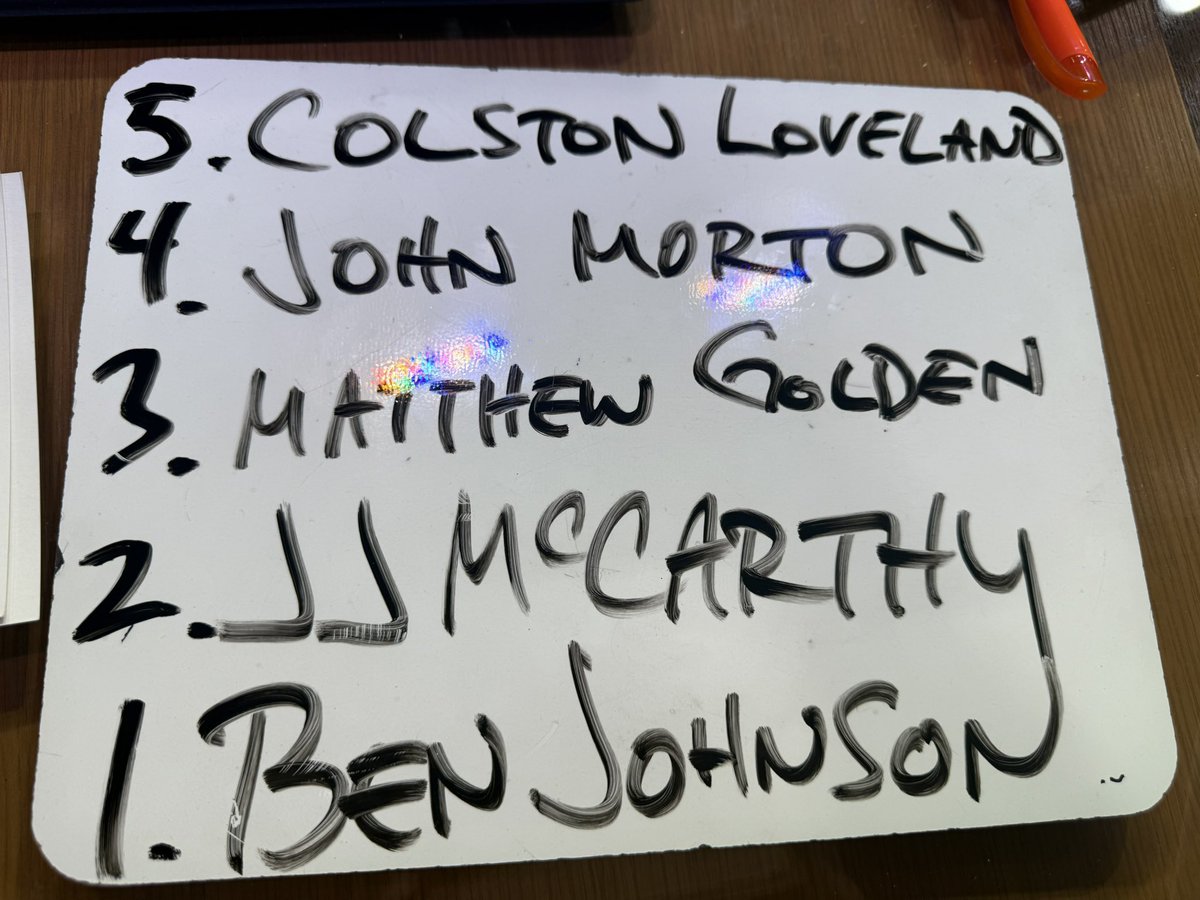 5. COLSTON LOVELAND
4. JOHN MORTON
3. MATTHEW GOLDEN
2. JJ MCCARTHY
1. BEN JOHNSON